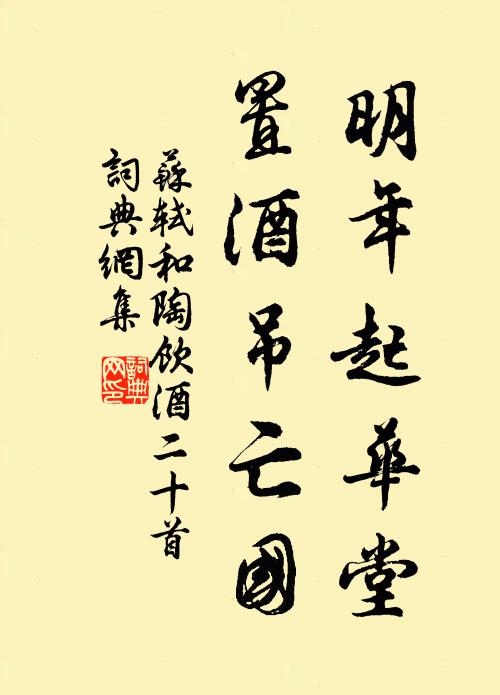 明年起華堂
置酒吊亡國
蘇軾和陶飲酒二十首
詞典網集
詞典网印